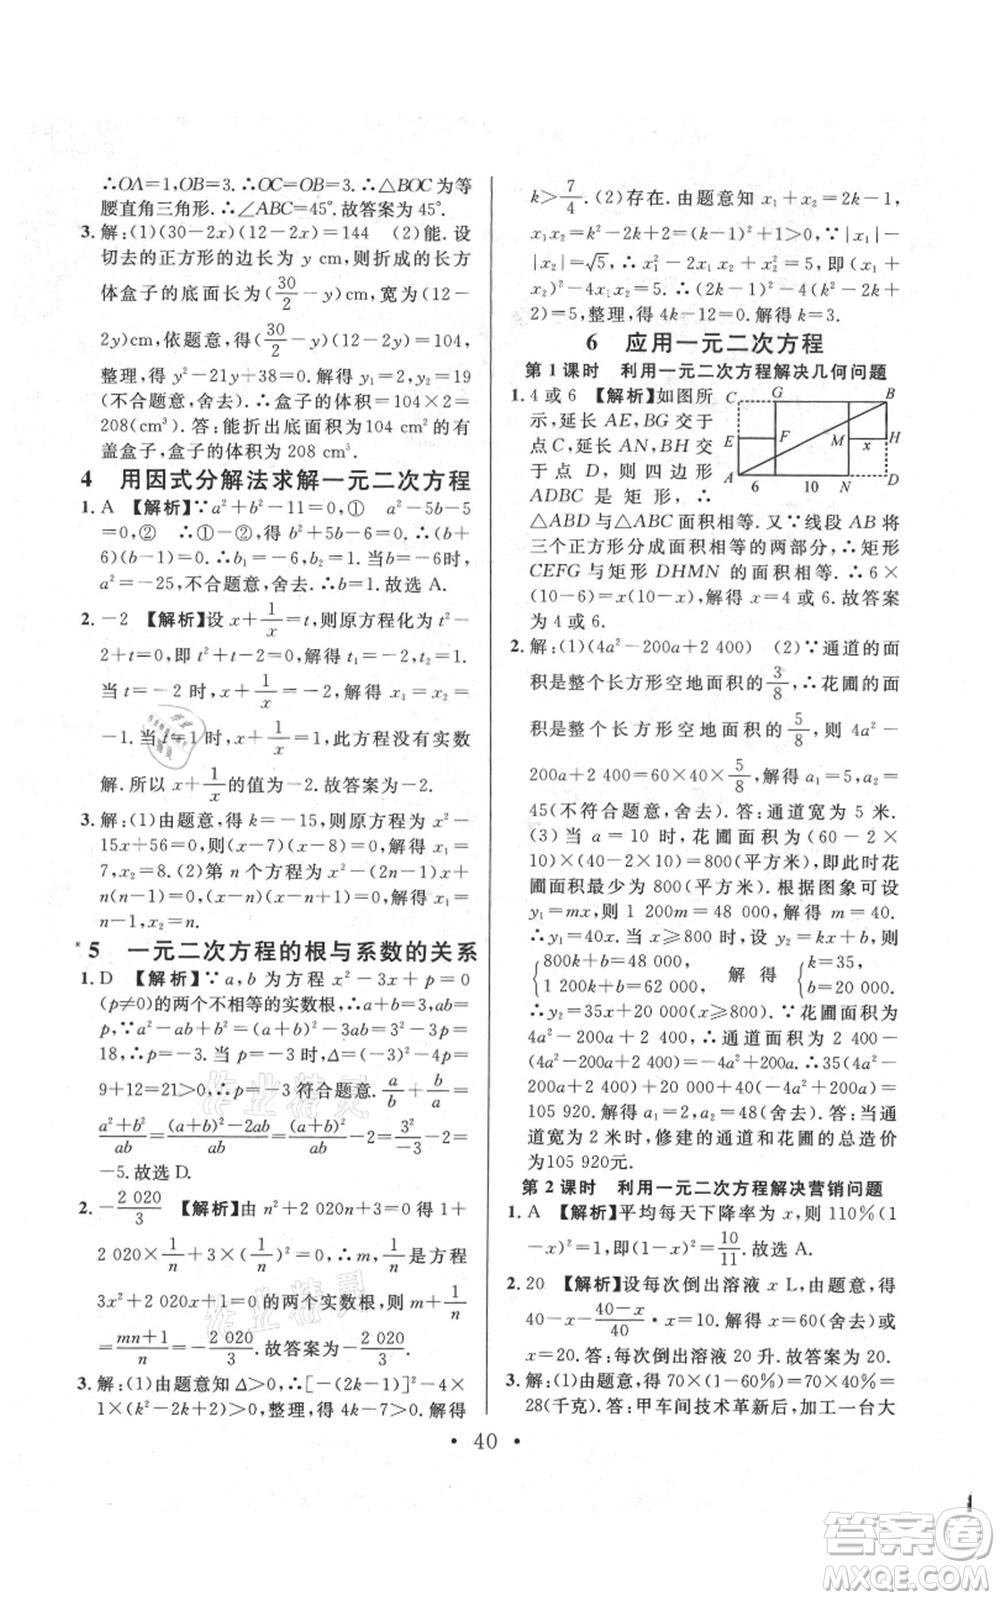 ∴OA=1,OB=3.∴OC=OB=3.∴△BOC为等
腰直角三角形.∴∠ABC=45°.故答案为45°.
3.解:(1)(30-2x)(12-2x)=144 (2)能.设
切去的正方形的边长为 y cm,则折成的长方
体盒子的底面长为(30/2-y)cm,宽为(12-
2y)cm,依题意,得(30/2-y)(12-2y)=104,
整理,得 y²-21y+38=0.解得 y₁=2,y₂=19
(不合题意,舍去).∴盒子的体积=104×2=
208(cm³).答:能折出底面积为104 cm²的有
盖盒子,盒子的体积为208 cm³.
4 用因式分解法求解一元二次方程
1.A 【解析】∵a²+b²-11=0,① a²-5b-5
=0,② ∴①-②,得 b²+5b-6=0.∴(b+
6)(b-1)=0.解得 b=-6 或 1.当 b=-6时,
a²=-25,不合题意,舍去.∴b=1.故选 A.
2.-2 【解析】设 x+1/x=t,则原方程化为t²+t
-2=0,即 t²+t=2.解得 t₁=-2,t₂=1.
当 t=-2 时,x+1/x=-2,解得 x₁=x₂=
-1.当 t=1 时,x+1/x=1,此方程没有实数
解.所以 x+1/x 的值为-2.故答案为-2.
3.解:(1)由题意,得 k=-15,则原方程为 x²-
15x+56=0,则(x-7)(x-8)=0.解得 x₁=
7,x₂=8.(2)第 n 个方程为 x²-(2n-1)x+
n(n-1)=0,则(x-n)(x-n+1)=0.解得 x₁=
n-1,x₂=n.
*5 一元二次方程的根与系数的关系
1.D 【解析】∵a,b 为方程 x²-3x+p=0
(p≠0)的两个不相等的实数根,∴a+b=3,ab=
p,∵a²-ab+b²=(a+b)²-3ab=3²-3p=
18,∴p=-3.当 p=-3 时,Δ=3²-4p=
9+12=21>0,∴p=-3符合题意.a/b+b/a=
(a²+b²)/ab=((a+b)²-2ab)/ab=(a+b)²/ab-2=3²/-3-2=
-5.故选 D.
2.-2 020/3 【解析】由 n²+2 020n+3=0 得1+
2 020×1/n+3×(1/n)²=0,∴m,1/n是方程
3x²+2 020x+1=0 的两个实数根,∴m+1/n
=(mn+1)/n=-2 020/3.故答案为-2 020/3.
3.解:(1)由题意知 Δ>0,∴[-(2k-1)]²-4×
1×(k²-2k+2)>0,整理,得 4k-7>0.解得
k>7/4.(2)存在.由题意知 x₁+x₂=2k-1,
x₁x₂=k²-2k+2=(k-1)²+1>0.∵|x₁|-
|x₂|=√5,∴x₁²-2x₁x₂+x₂²=5,即(x₁+
x₂)²-4x₁x₂=5.∴(2k-1)²-4(k²-2k+
2)=5,整理,得 4k-12=0.解得 k=3.
6 应用一元二次方程
第1课时 利用一元二次方程解决几何问题
1.4 或 6 【解析】如图所
示,延长 AE,BG 交于
点C,延长 AN,BH 交
于点 D,则四边形
ADBC 是矩形,∴
△ABD与△ABC面积相等.又∵线段 AB 将
三个正方形分成面积相等的两部分,∴矩形
CEFG 与矩形 DHMN 的面积相等.∴6×
(10-6)=x(10-x).解得 x=4 或 6.故答案
为 4 或 6.
C G B
E F M H
x
A 6 10 N D
2.解:(1)(4a²-200a+2 400) (2)∵通道的面
积是整个长方形空地面积的3/8,∴花圃的面
积是整个长方形空地面积的5/8,则 4a²-
200a+2 400=60×40×5/8,解得 a₁=5,a₂=
45(不符合题意,舍去).答:通道宽为 5 米.
(3)当 a=10 时,花圃面积为(60-2×
10)×(40-2×10)=800(平方米),即此时花
圃面积最少为 800(平方米).根据图象可设
y₁=mx,则1 200m=48 000,解得 m=40.
∴y₁=40x.当 x≥800 时,设 y₂=kx+b,则
{800k+b=48 000, 1 200k+b=62 000, 解得 {k=35, b=20 000.
∴y₂=35x+20 000(x≥800).∵花圃面积为
4a²-200a+2 400,∴通道面积为2 400-
(4a²-200a+2 400)=-4a²+200a.∴35(4a²-
200a+2 400)+20 000+40(-4a²+200a)=
105 920.解得 a₁=2,a₂=48(舍去).答:当通
道宽为 2 米时,修建的通道和花圃的总造价
为105 920元.
第2课时 利用一元二次方程解决营销问题
1.A 【解析】平均每天下降率为 x,则110%(1
-x)²=1,即(1-x)²=10/11.故选 A.
2.20 【解析】设每次倒出溶液 x L,由题意,得
40-x-(40-x)/40·x=10.解得 x=60(舍去)或
x=20.答:每次倒出溶液 20 升.故答案为20.
3.解:(1)由题意,得 70×(1-60%)=70×40%=
28(千克).答:甲车间技术革新后,加工一台大
· 40 ·
作业精灵
作业精灵
答案卷
MXQE.COM